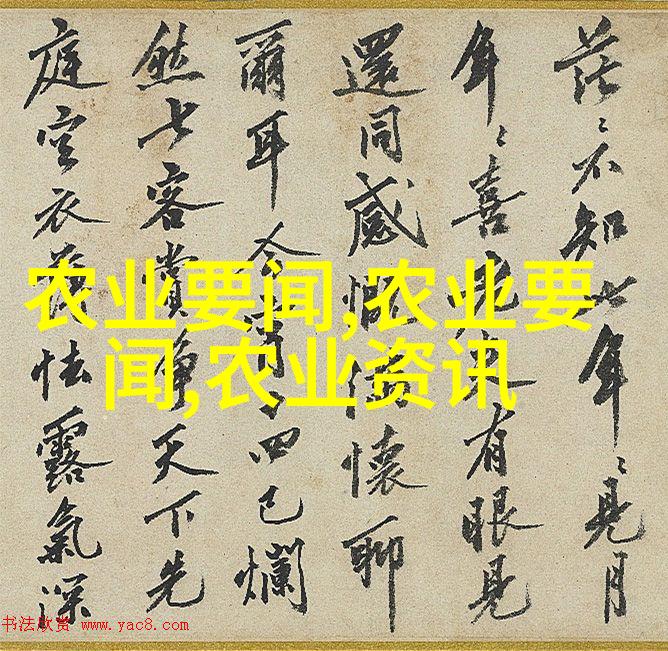 茫〻不知年〻見月
年〻喜有眼見
還同感懷聊
爾耳今四已爛
然客賞天下先
庭空衣薄怯露氣深
农业要闻,农业要
闻,农业资讯
书法欣赏 www.yac8.com